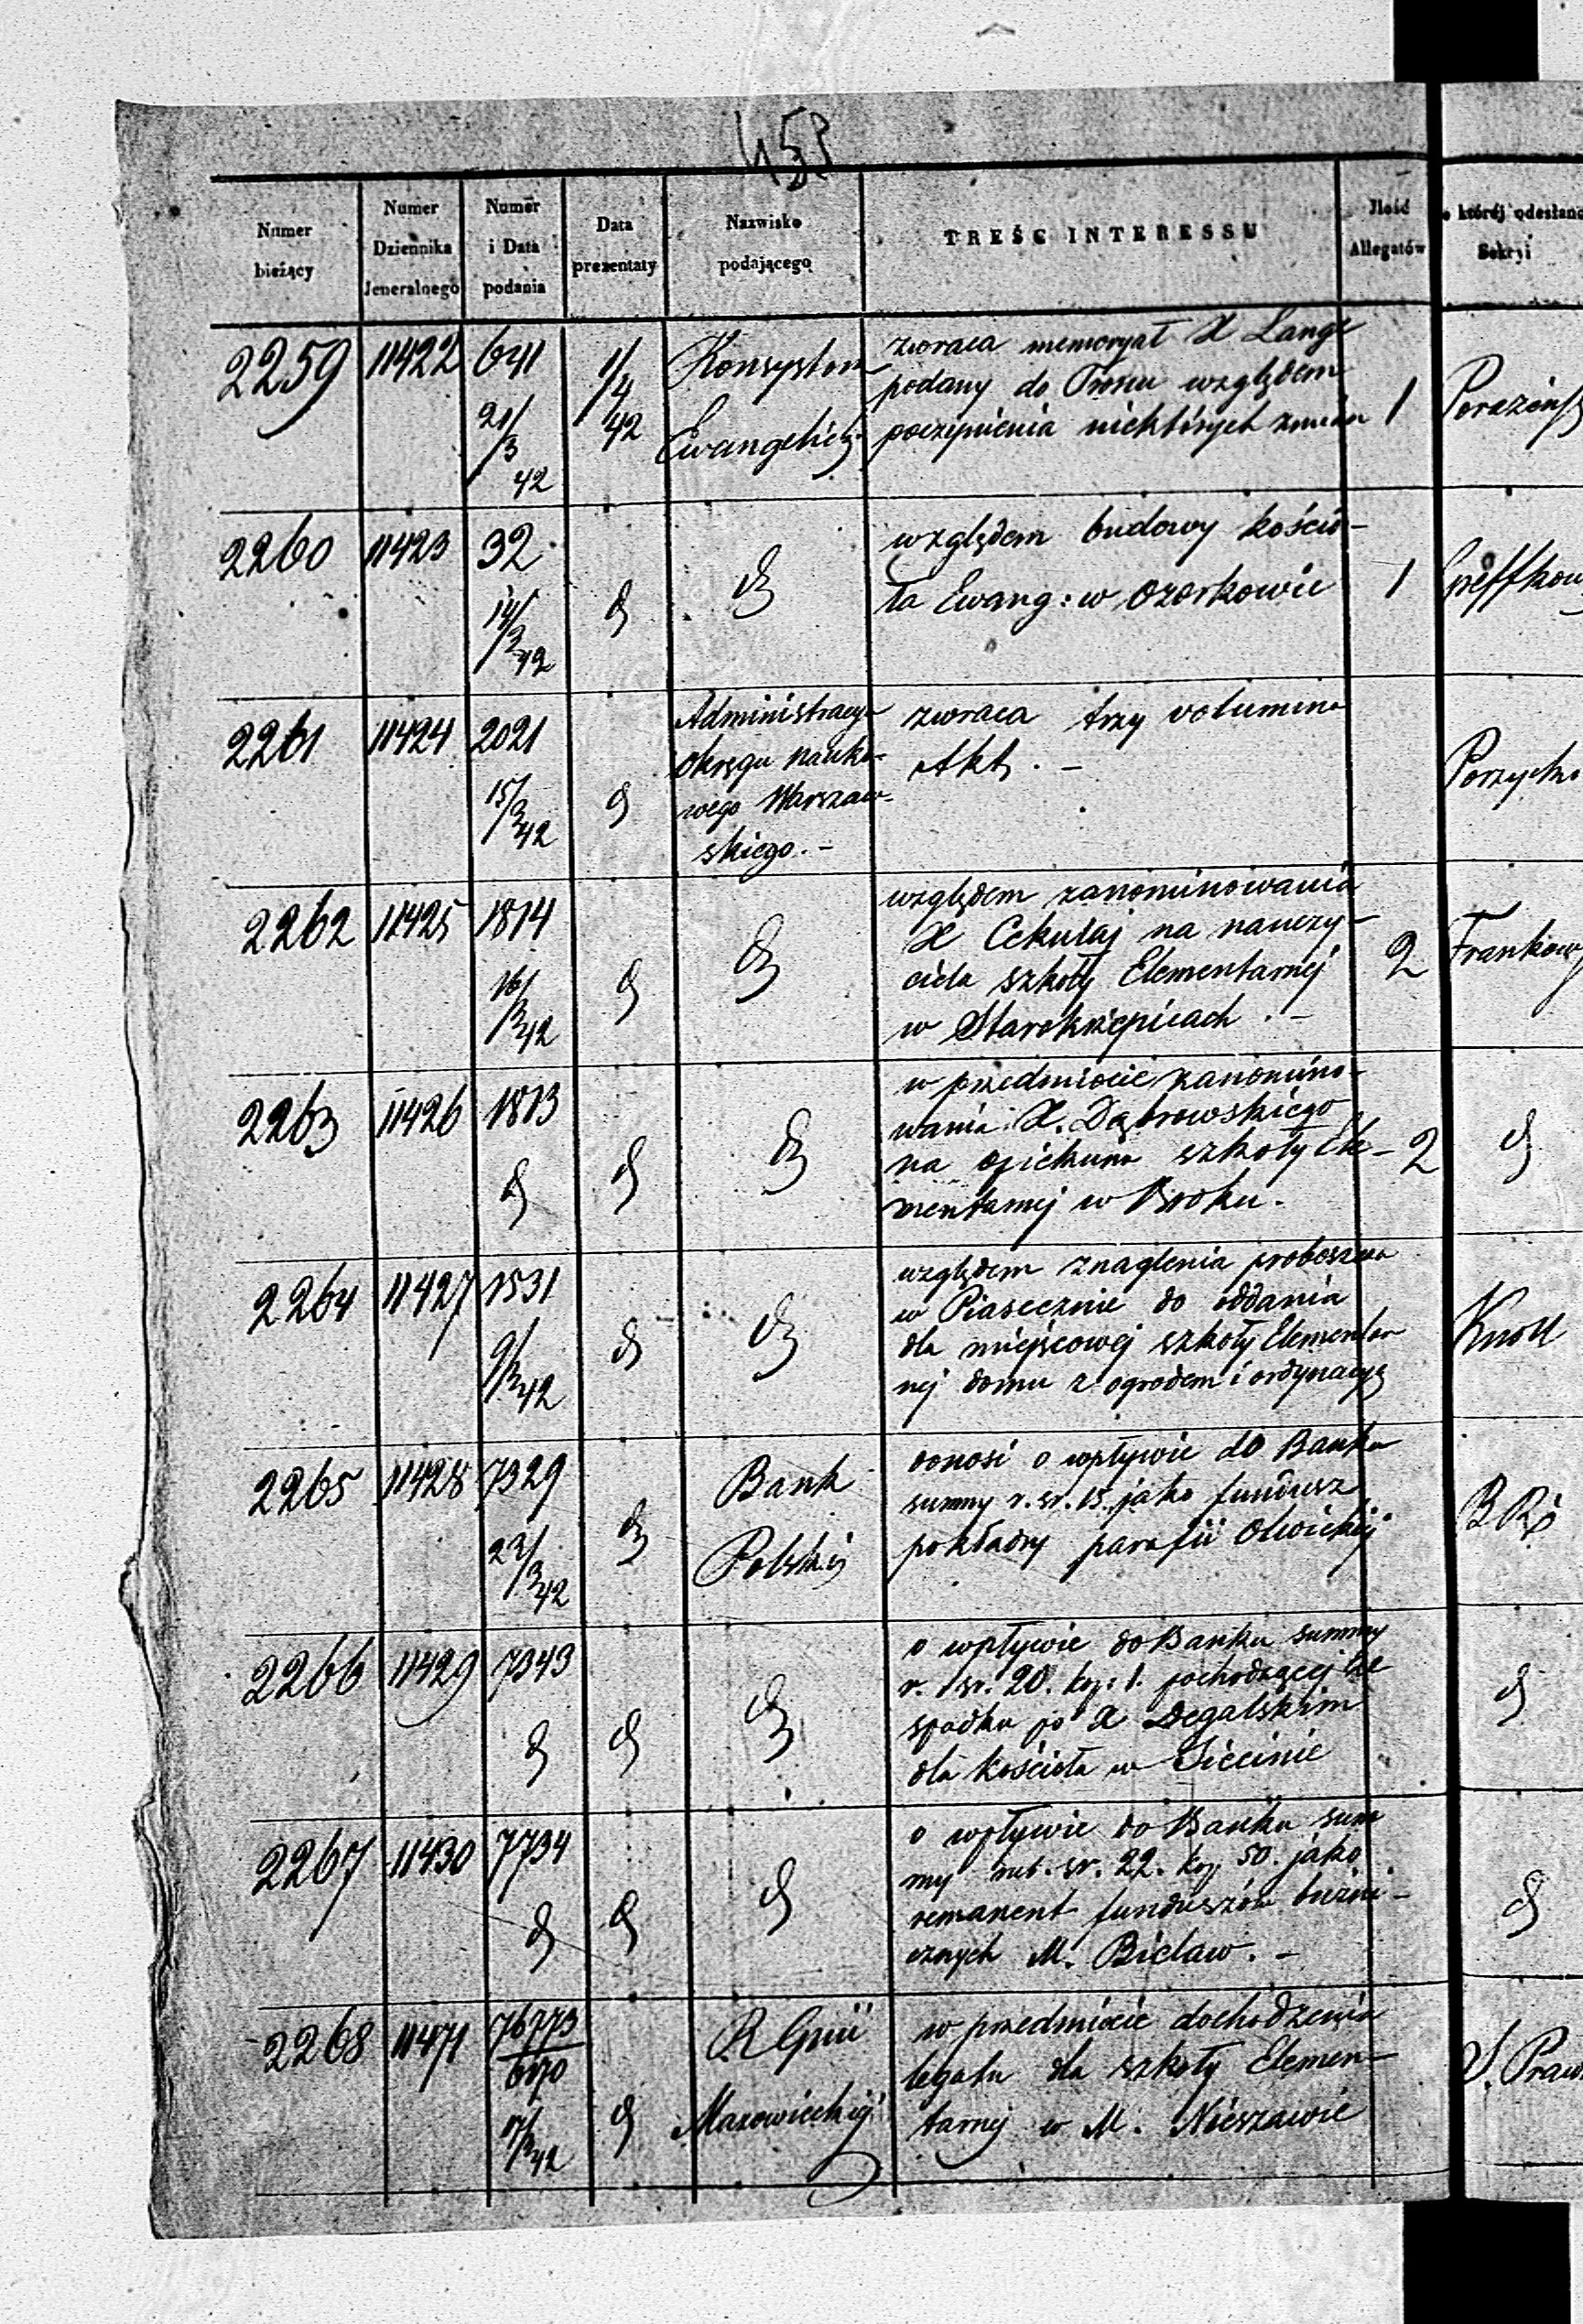 453
Numer bieżący
Numer Dziennika Jeneralnego
Numer i Data podania
Data prezentaty
Nazwisko podającego
TREŚC INTERESSU
Ilość Allegatów
do której odesłano Sekcyi
2259 11422 641 21/3 42 1/4 42
Konsystorz
Ewangelicki
zwraca memoryał X Lange
podany do Tronu względem
poczynienia niektórych zmian
1
2260 11423 32 14/3 42
względem budowy kościo-
ła Ewang: w Ozorkowie
1
2261 11424 2021 15/3 42
Administracya
Okręgu Nauko-
wego Warszaw-
skiego. -
zwraca trzy volumina
Akt. -
2262 11425 1814 16/3 42
względem zanominowania
X Cekulaj na nauczy-
ciela szkoły Elementarnej
w Starokrzepicach. -
2
2263 11426 1813
w przedmiocie zanomino-
wania X. Dąbrowskiego
na opiekuna szkoły Ele-
mentarnej w Broku.
2
2264 11427 1531 9/3 42
względem znaglenia proboszcza
w Piasecznie do oddania
dla miejscowej szkoły Elementar
nej domu z ogrodem i ordynacyą
Knoll
2265 11428 7329 22/3 42
Bank
Polski
donosi o wpływie do Banku
summy r. sr. 15. jako fundusz
pokładny parafii
2266 11429 7343
o wpływie do Banku summy
r. sr. 20. kop: 1. pochodzącej ze
spadku po X Degalskim
dla kościoła w Siecinie
2267 11430 7734
o wpływie do Banku sum
my rub. sr. 22. kop. 50. jako
remanent funduszów bużni-
cznych M. Bielaw. -
2268 11471 76773/6070 17/3 42
R Gnii
Mazowieckiej
w przedmiocie dochodzenia
legatu dla szkoły Elemen-
tarnej w M. Nieszawie